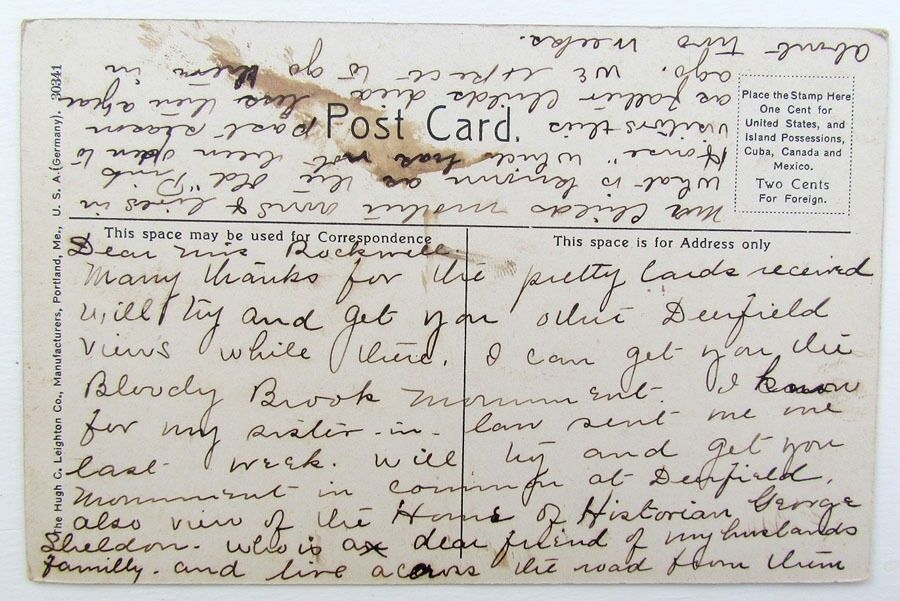 Post Card.
Place the Stamp Here
One Cent for
United States, and
Island Possessions,
Cuba, Canada and
Mexico.
Two Cents
For Foreign.
The Hugh C. Leighton Co., Manufacturers, Portland, Me., U. S. A. (Germany). 30341
This space may be used for Correspondence
This space is for Address only
Dear Miss Rockwell.
Many thanks for the pretty cards received
will try and get you other Deerfield
views while there. I can get you the
Bloody Brook Monument. I know
for my sister-in-law sent me one
last week. will try and get you
monument in common at Deerfield.
also view of the Home of Historian George
Sheldon. who is a dear friend of my husbands
familly. and live across the road from them
Mrs Childs mother owns & lives in
what is known as the old "Pink
House" which has not been open to
visitors this past season
as father Childs died less then a year
ago. we expect to go there in
about two weeks.